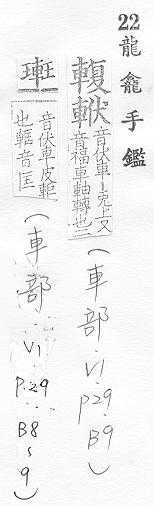 22 龍龕手鑑
輹 音伏車兔上又
音福車軸縛也二
(車部.V1.P29.B9)
音伏車皮軛
也 音匡
(車部.V1.P.29.B8~9)